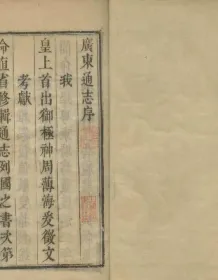 廣東通志序
我
皇上首出御極神周薄海爰徵文
考獻
命直省修輯通志列國之書次第